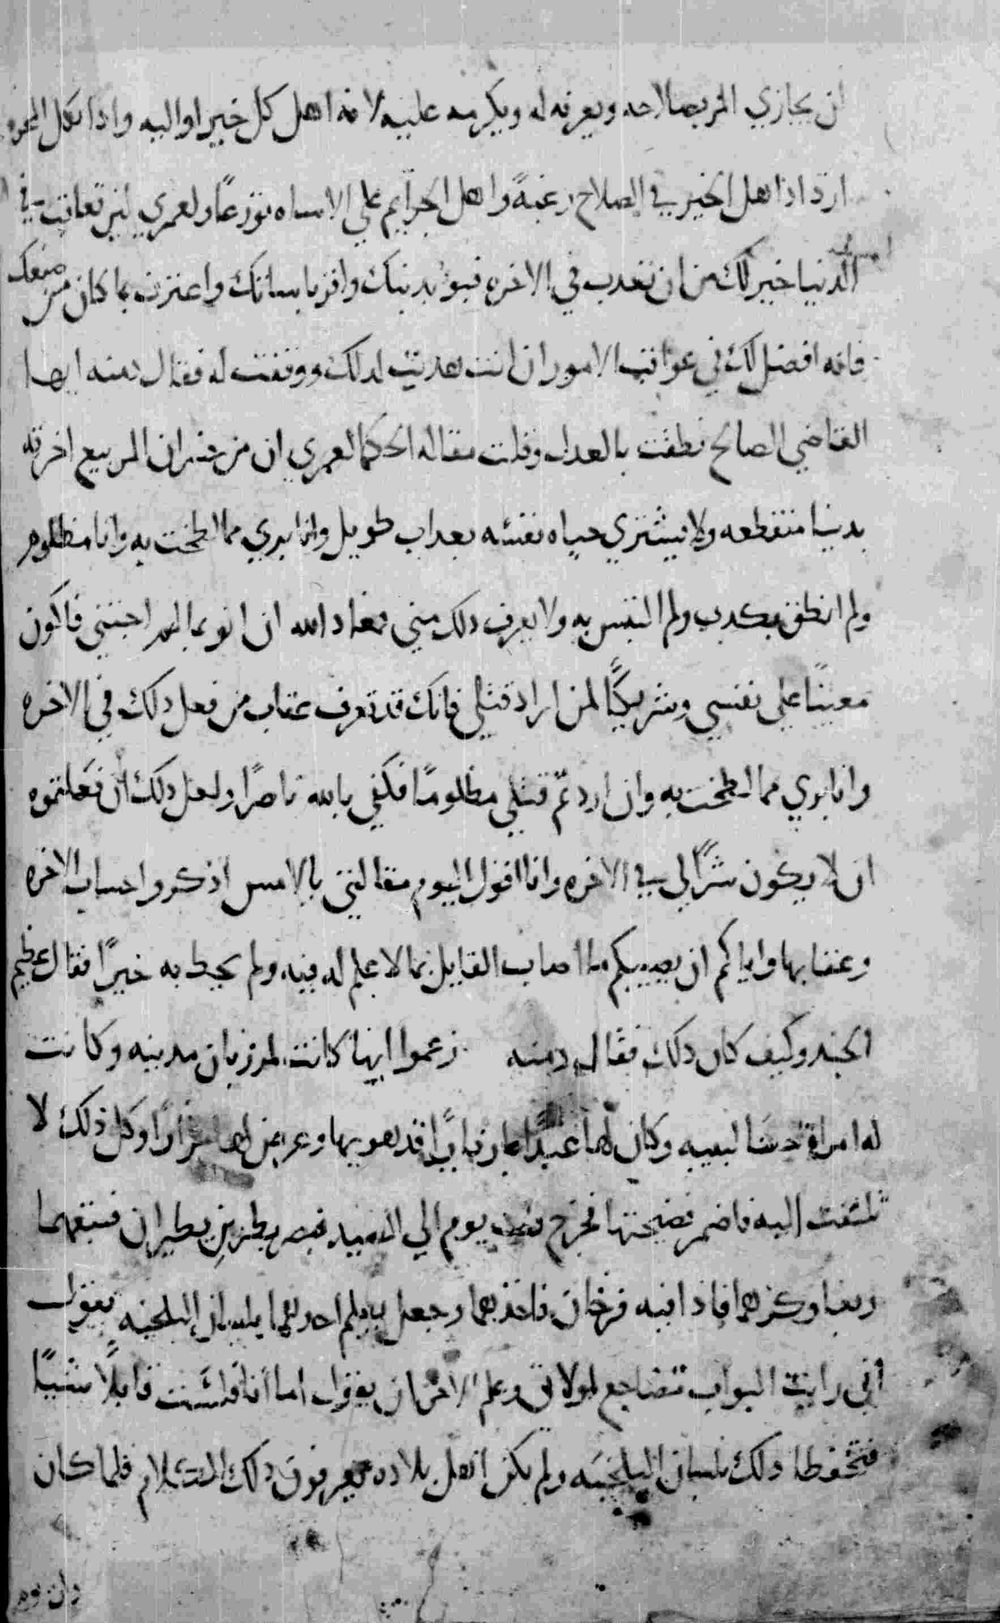 ان يجازي المر بصلاحه ويعرفه له ويكرمه عليه لانه اهل كل خير اوالبه واذا نكل المجرم
ازداد اهل الخير في الصلاح رغبةً واهل الجرايم علي الاساه تورعًا ولعمري لين تعاقب في
الدنيا خير لك من ان تعدب في الاخره فبو بدنبك واقر باساتك واعترف بما كان من صنعك
فانه افضل لك في عواقب الامور ان انت هديت لدلك ووفقت له فقال دمنه ايها
القاضي الصالح نطقت بالعدل وقلت مقاله الحكما لعمري ان من المر يبيع اخرته
بدنيا منقطعه ولا يشتري حياه نفسه بعداب طويل وانا بري مما لطخت به وانا مظلوم
ولم انطق بكدب ولم التبس به ولا يعرف دلك مني فمعاد الله ان ابو بما لم اجنني فاكون
معينًا علي نفسي وشريكًا لمن اراد قتلي فانك قد تعرف عقاب من فعل دلك في الاخره
وانا بري مما لطخت به وان اردتم قتلي مظلومًا فكفي بالله ناصرًا ولعل دلك ان فعلتموه
ان لا يكون شرًا لي في الاخره وانا اقول اليوم مقالتي بالامس اذكروا حساب الاخره
وعقابها واياكم ان يصيبكم ما اصاب القايل بما لا علم له فيه ولم يحط به خبرًا فقال عظيم
الجند وكيف كان دلك فقال دمنه زعموا انها كانت لمرزبان مدينه وكانت
له امراه حسنا لبيبه وكان لها عبدًا بازيارًا قد هويها وعرض لها مرارًا وكل ذلك لا
تلتفت اليه فاضمر فضيحتها فخرج يوم الي الصيد فبصر بطيرين يطيران فتبعهما
وكزهما فاذا فيه فرخان فاخذهما وجعل يعلم احدهما بلسان البلخيه يقول
اني رايت البواب تضاجع لمولاتي وعلم الاخر ان يقول اما انا فلست قايلًا شيًا
فتحفظا دلك بلسان البلخيه ولم يكن اهل بلاده يعرفون دلك الكلام فلما كان
دات يوم